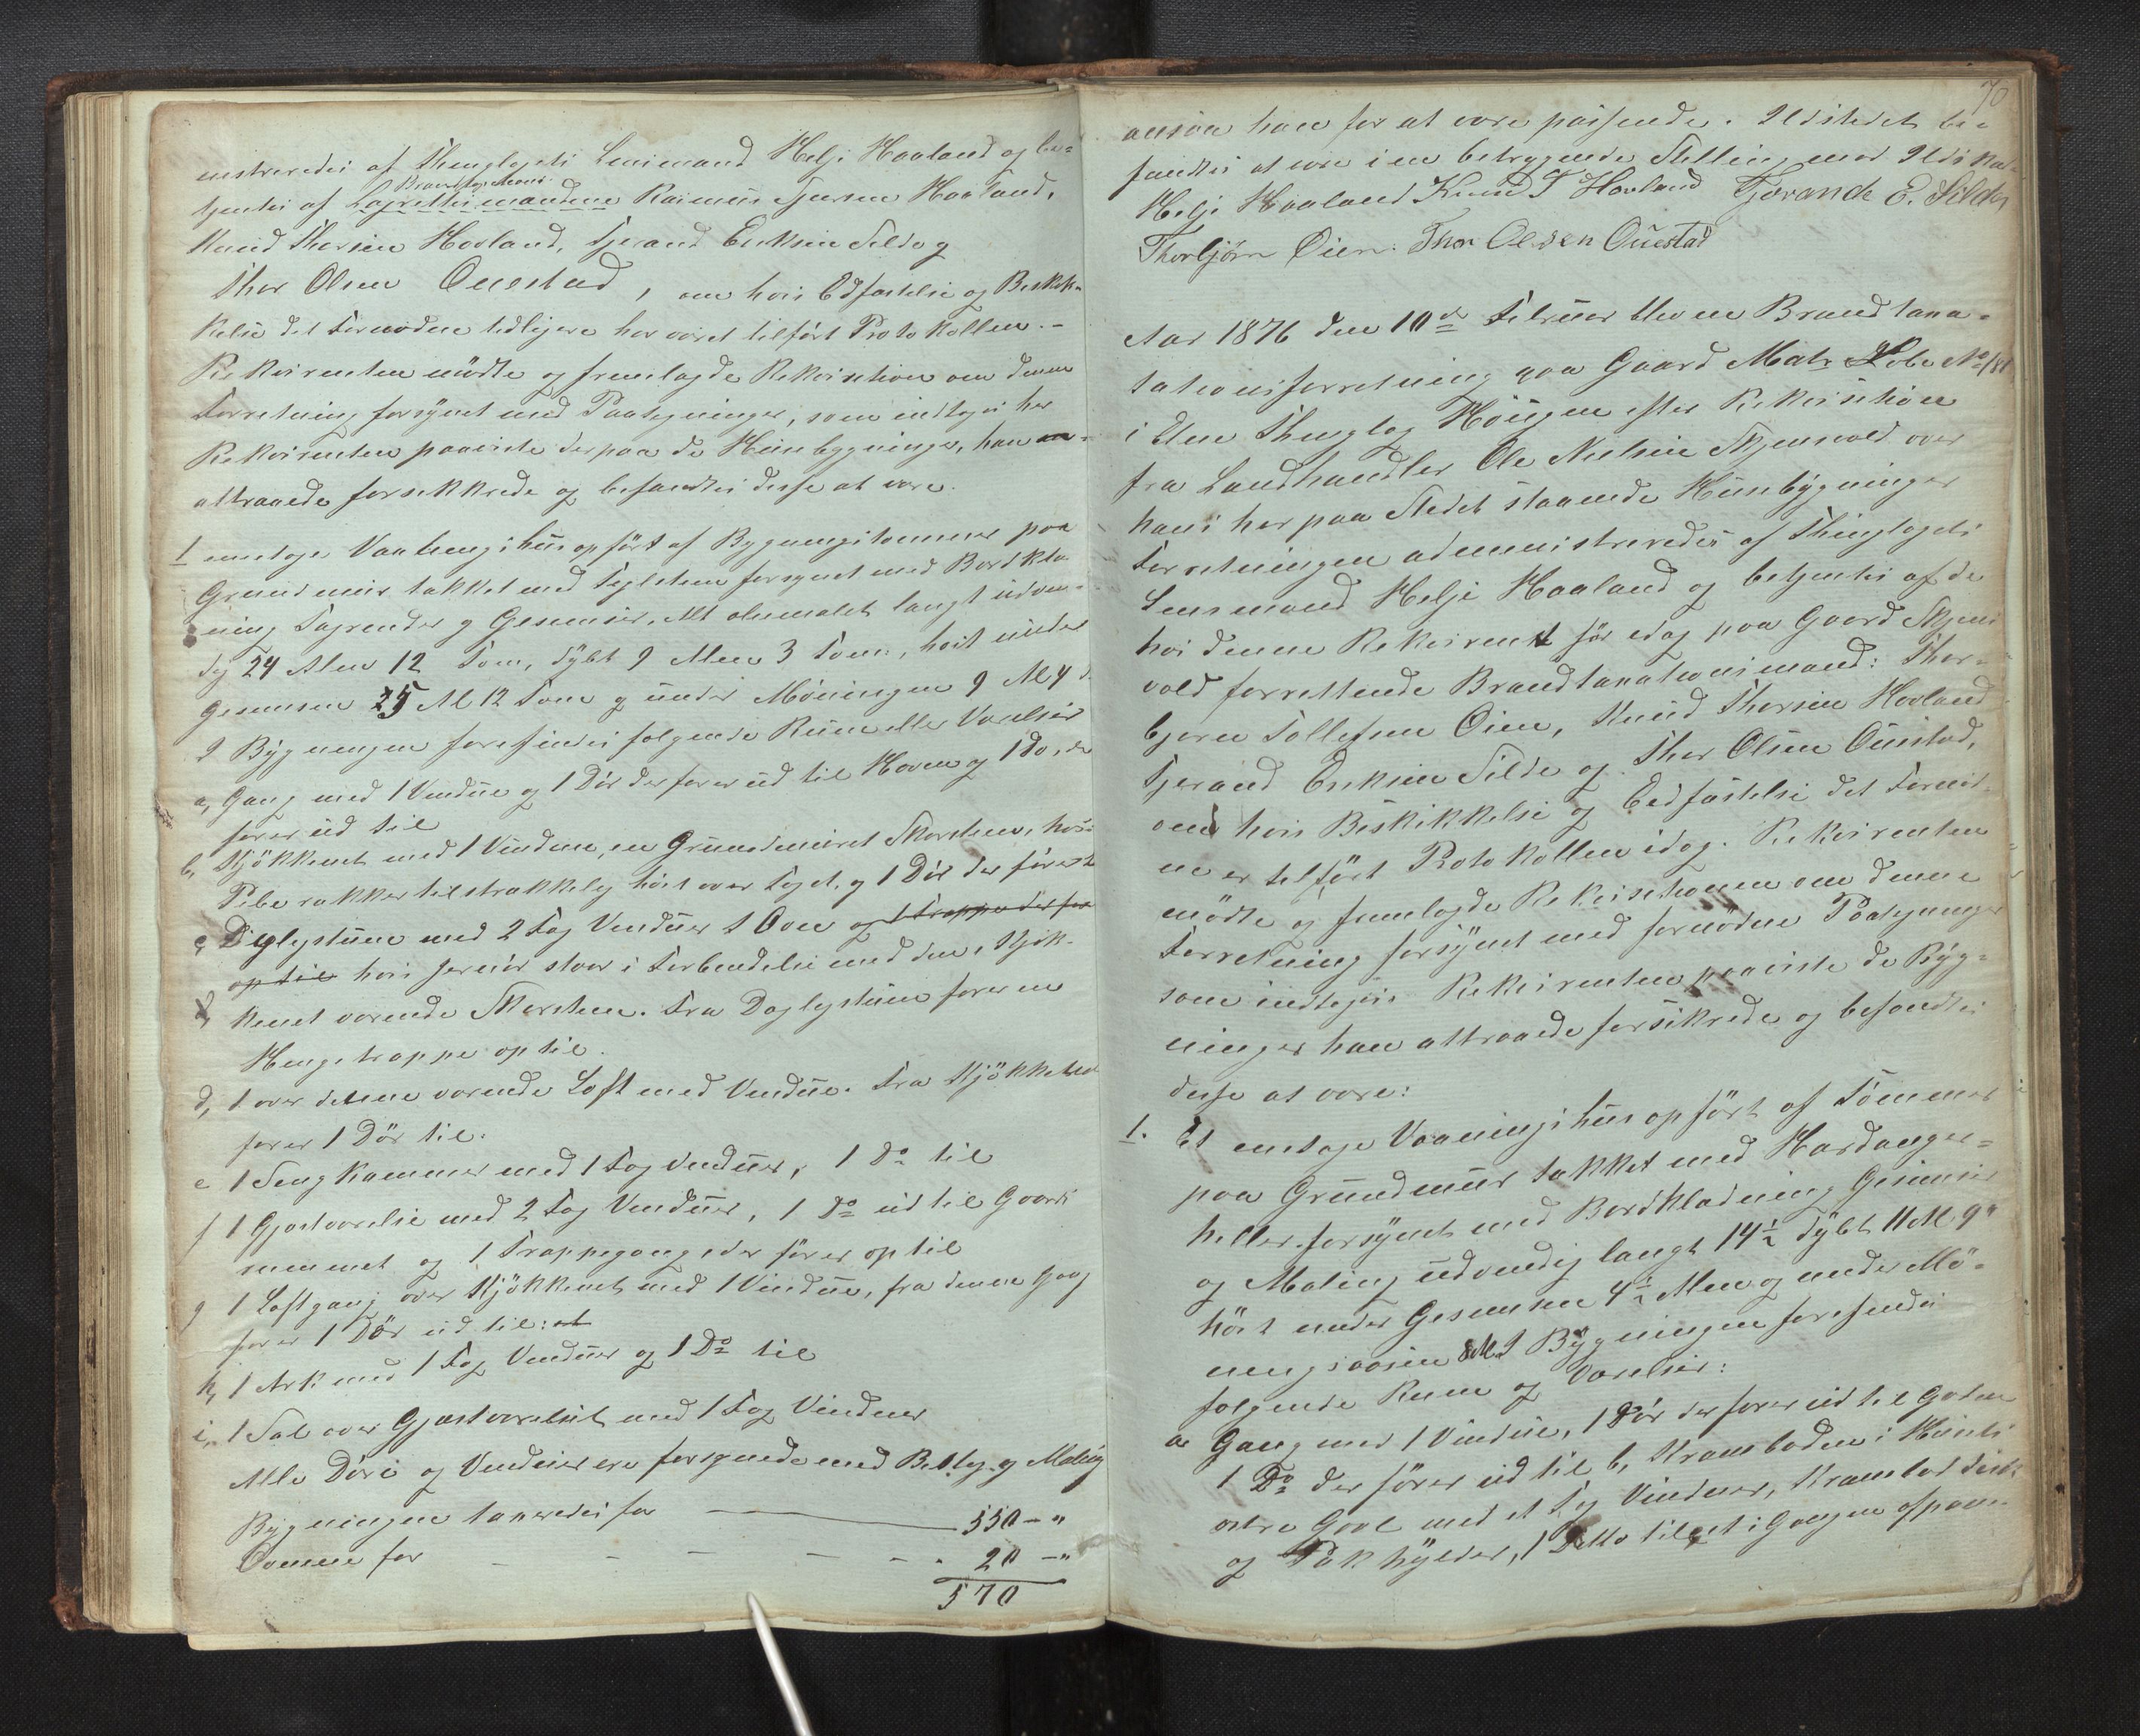 nistreredes af Thinglagets Lensmand Helje Haaland og be=
Brandtax.Mænd
tjentes af Lagrettesmændene Rasmus Haaland,
Knud Thorsen Hovland, Tjerand Eriksen Silde og
Thor Olsen Questad, om hvis Edfæstelse og Beskik-
kelse det Fornødne tidligere har været tilført Protokollen.-
Rekvirenten mødte og fremlagde Rekvisition om denne
Forretning forsynet med Paategninger, som indtages her
Rekvirenten paaviste derpaa de Huusbygninger, han
attraaede forsikkrede og befandtes disse at være.
1 enetages Vaaningshus opført af Bygningstømmer paa
Grundmur takket med Teglsten forsynet med Bordklæ
ning Tagrender og Gesimser, Alt oliemalet langt udven-
dig 24 Alen 12 Tom, dybt 9 Alen 3 Tom, høit under
Gesimsen 5 Al 12 Tom og under Møningen 9 Al 4
I Bygningen forefindes følgende Rum eller Værelser
a, Gang med 1 Vindue og 1 Dør der fører ud til Haven og 1 do, der
fører ud til
b, Kjøkkenet med 1 Vindue, en Grundmuret Skorsten, hvis
Pibe rækker tilstrækkelig høit over Taget, og 1 Dør der fører t
c, Daglystuen med 2 Fag Vinduer 1 Ovn og 1 Trappe der før
op til hvis Jernrør staar i Forbindelse med den i Kjøk-
kenet værende Skorsten. Fra Daglystuen fører en
Hengetrappe op til.
d, 1 over denne værende Loft med Vindue. Fra Kjøkkenet
fører 1 Dør til.
e 1 Sengkammer med 1 Fag Vinduer, 1 Do til
f 1 Gjæstværelse med 2 Fag Vinduer, 1 Do ud til Gaards
rummet og 1 Trappegang der fører op til
g 1 Loftgang over Kjøkkenet med 1 Vindue, fra denne Gang
fører 1 Dør ud til: et
h, 1 Ark med 1 Fag Vinduer og 1 Do til
i, 1 Sal over Gjæstværelset med 1 Fag Vinduer
Alle Døre og Vinduer ere forsynede med Beslag og Maling
Bygningen taxeredes for 550 - "
Ovnene for - - - - - 20 - "
570
70
ansaa han for at være passende. Ildstedet be-
fandtes at være i en betryggende Stilling mod Ildsva-
Helje Haaland Knud T Hovland Tjerande E. Silde
Thorbjørn Øien. Thor Olsen Questad
Aar 1876 den 10de Februar blev en Brandtaxa-
tionsforretning paa Gaard Matr Løbe No 181
i Etne Thinglag Haugen efter Rekvisition
fra Landhandler Ole Nielsen Skjensvold over
hans her paa Stedet staaende Huusbygninger
Forretningen administreredes af Thinglagets
Lensmand Helje Haaland og betjentes af de
hos denne Rekvirent før idag paa Gaard Skjens
vold forrettende Brandtaxationsmænd: Thor-
bjørn Tollefsen Øien, Knud Thorsen Hovland
Tjerand Eriksen Silde og Thor Olsen Questad,
om hvis Beskikkelse og Eedfæstelse det Fornød-
ne er tilført Protokollen idag. Rekvirenten
mødte og fremlagde Rekvisitionen om denne
Forretning forsynet med fornødne Paategninger
som indtages. Rekvirenten paaviste de Byg-
ninger han attraaede forsikrede og befandtes
disse at være:
1. Et enetages Vaaningshus opført af Tømmer
paa Grundmur takket med Hardanger=
heller forsynet med Bordklædning Gesimser
og Maling udvendig langt 14½ dybt 11 Al 9"
høit under Gesimsen 4½ Alen og under Mø-
ningsaasen 8 Al. I Bygningen forefindes
følgende Rum og Værelser:
a Gang med 1 Vindue, 1 Dør der fører ud til Gaden
1 Do der fører ud til b, Kramboden i Husets
østre Gavl med et Fag Vinduer, Krambod disk
og Pakhylder, 1 Ditto til et i Gangen